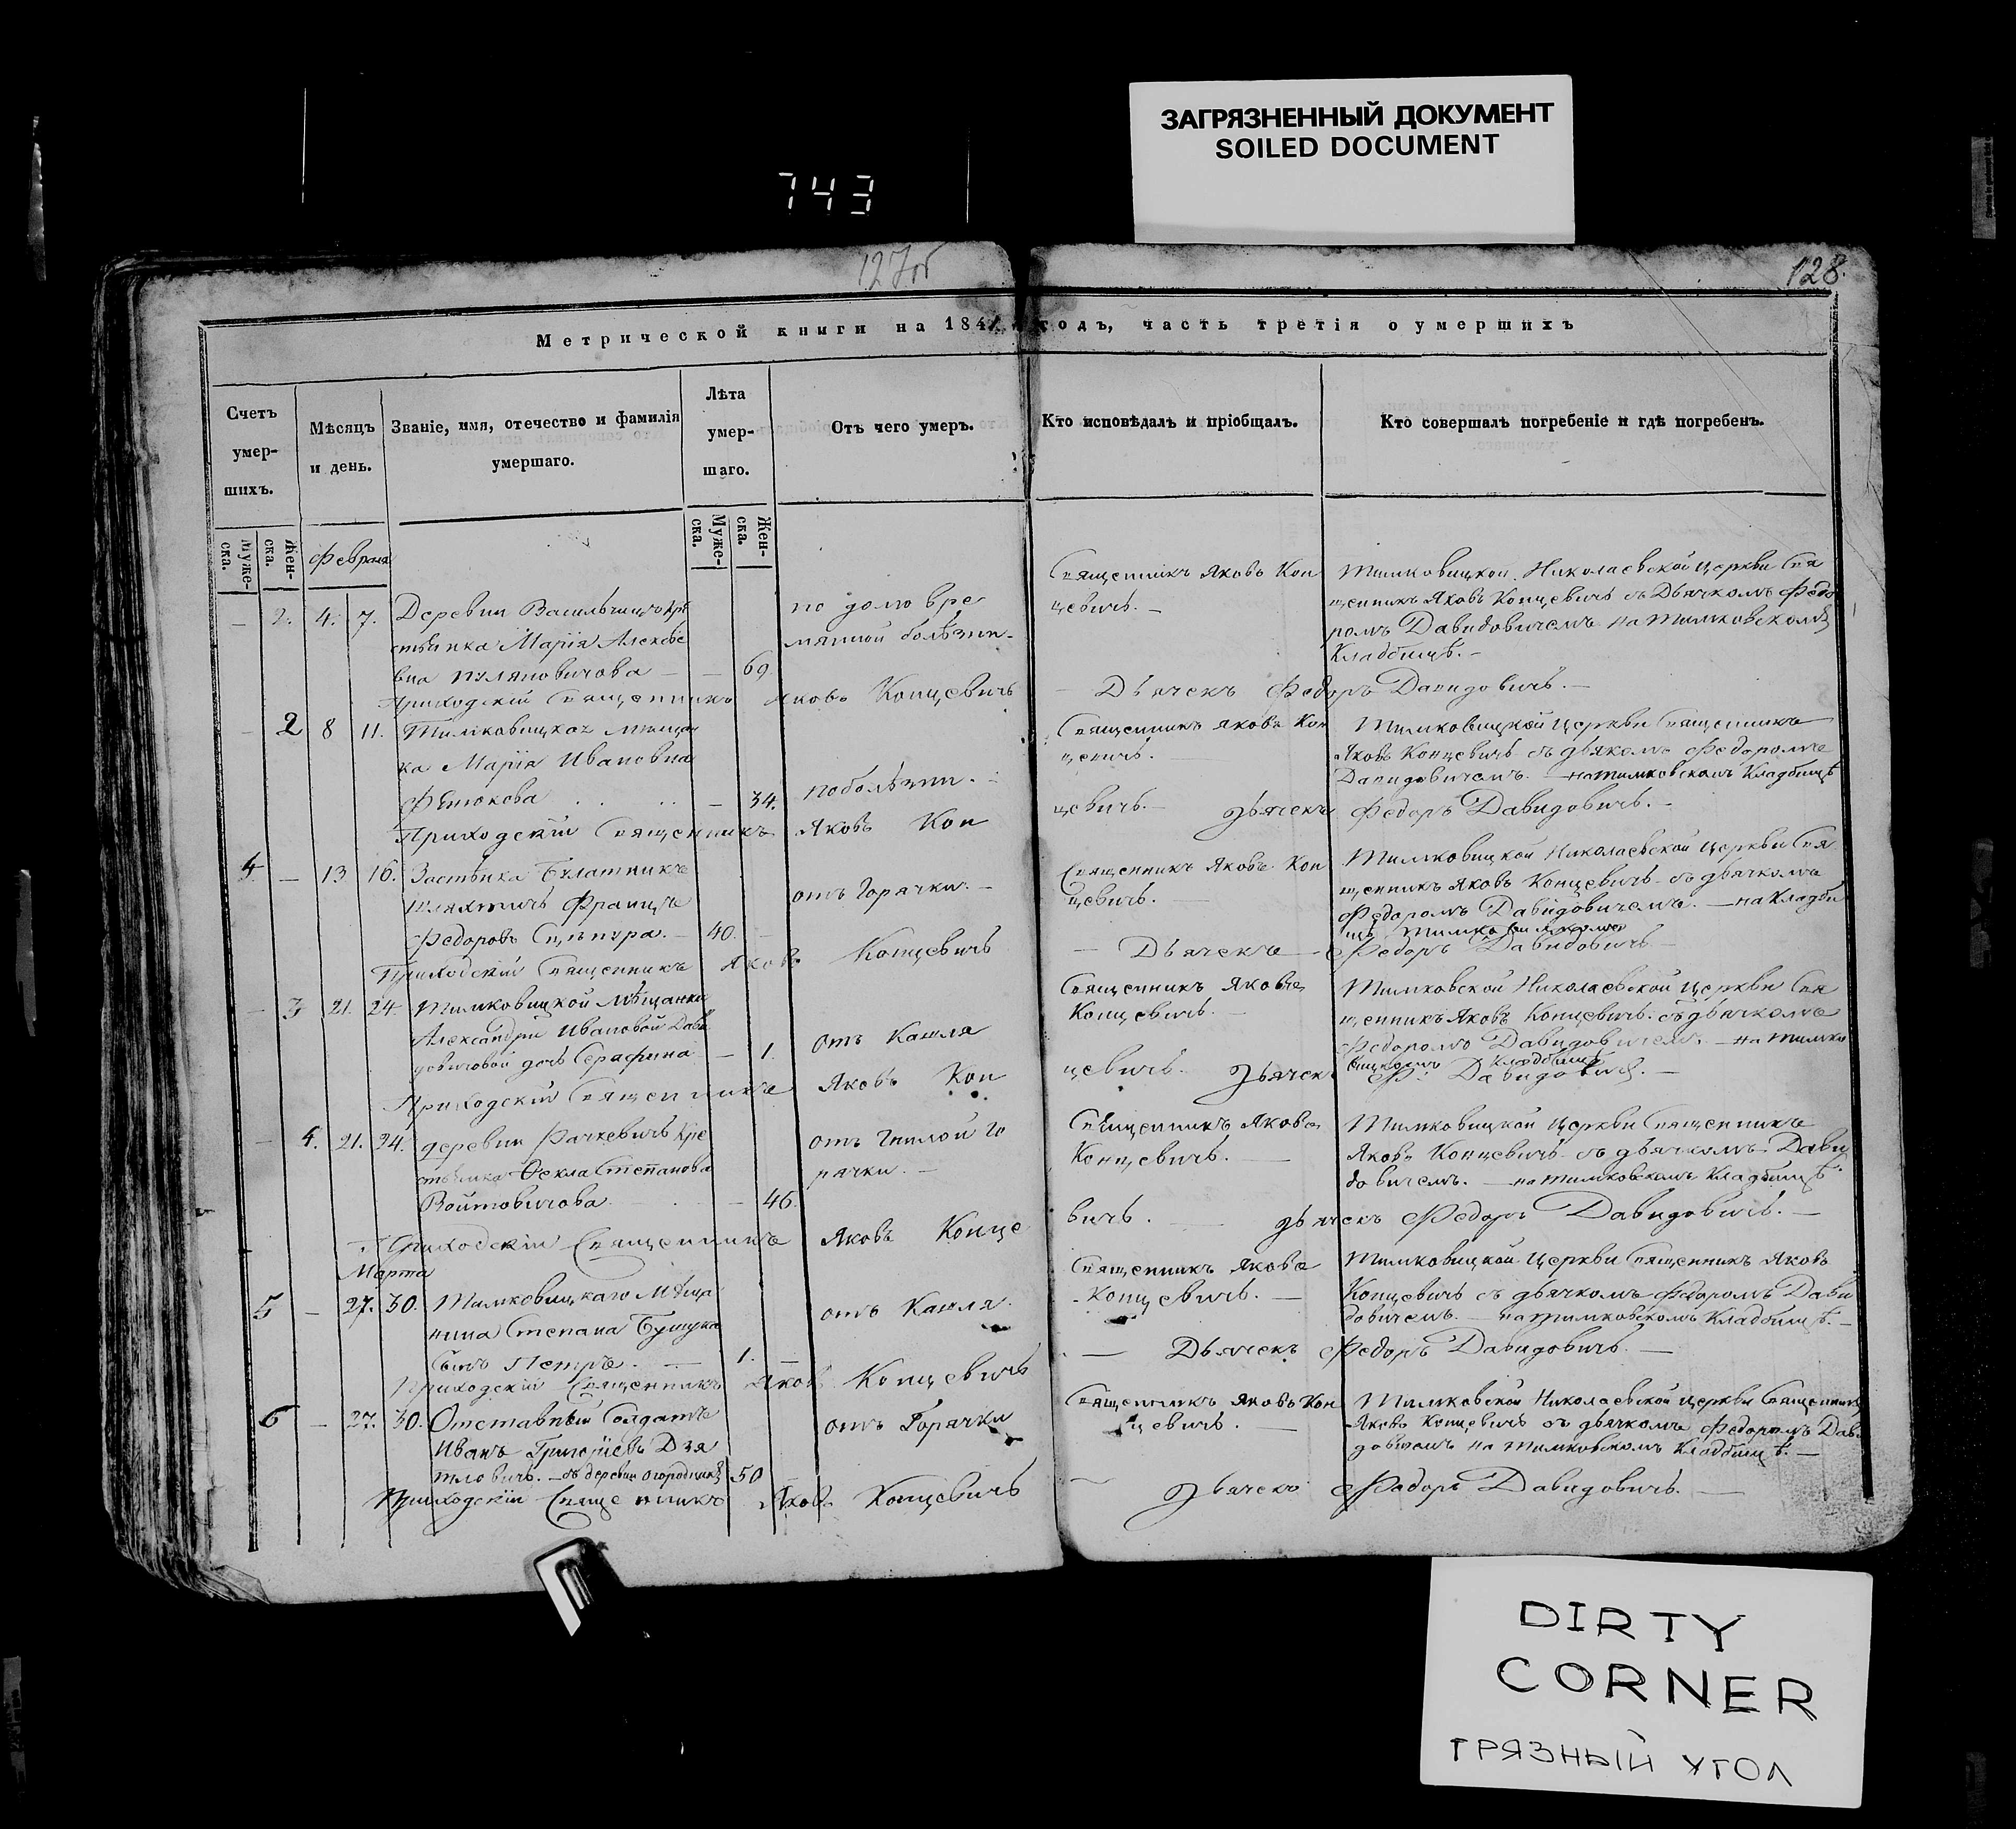 ЗАГРЯЗНЕННЫЙ ДОКУМЕНТ
SOILED DOCUMENT
743
127об
128.
Метрической книги на 184 годъ, часть третія о умершихъ
Счетъ умер-шихъ.
Мѣсяцъ и день.
Званіе, имя, отечество и фамилія умершаго.
Лѣта умер-шаго.
Отъ чего умеръ.
Кто исповѣдалъ и пріобщалъ.
Кто совершалъ погребеніе и гдѣ погребенъ.
Муже-ска.
Жен-ска.
Муже-ска.
Жен-ска.
Февраля
— 2. 4. 7.
Деревни Васильчицъ кре
стьянка Марія Алексѣе
вна — — 69.
по долговре
мянной болѣзни.
Священникъ Яковъ Кон
цевичъ. —
Тимковицкой Николаевской Церкви Свя
щенникъ Яковъ Концевичъ съ Дьячкомъ Федо
ромъ Давидовичемъ на Тимковскомъ
Кладбищѣ. —
Приходскій Священникъ Яковъ Концевичъ — Дьячекъ Федоръ Давидовичъ. —
— 2 8 11.
Тимковицкая мѣщан
ка Марія Ивановна
— 34.
по болѣзни.
Священникъ Яковъ Кон
цевичъ.
Тимковицкой Церкви Священникъ
Яковъ Концевичъ съ дьякомъ Федоромъ
Давидовичемъ. — на Тимковскомъ Кладбищѣ
Приходскій Священникъ Яковъ Концевичъ. — Дьячекъ Федоръ Давидовичъ. —
4. — 13 16.
Застѣнка
Шляхтичъ Францъ
Федоровъ — 40. —
отъ Горячки. —
Священникъ Яковъ Кон
цевичъ.
Тимковицкой Николаевской Церкви Свя
щенникъ Яковъ Концевичъ съ дьячкомъ
Федоромъ Давидовичемъ. — на Кладби
щѣ
Приходскій Священникъ Яковъ Концевичъ — Дьячекъ — Федоръ Давидовичъ —
— 3 21. 24.
Тимковицкой Мѣщанки
Александры Ивановой Дави
довичовой дочь Серафина — 1.
отъ Кашля
Священникъ Яковъ
Концевичъ. —
Тимковской Николаевской Церкви Свя
щенникъ Яковъ Концевичъ съ дьячкомъ
Федоромъ Давидовичемъ. — на Тимко
вицкомъ Кладбищѣ
Приходскій Священникъ Яковъ Концевичъ. Дьячекъ Ф: Давидовичъ. —
— 4. 21. 24.
деревни Рачкевичъ Кре
стьянка Ѳекла Степанова
Войтовичова — 46.
отъ гнилой го
рячки. —
Священникъ Яковъ
Концевичъ. —
Тимковицкой Церкви Священникъ
Яковъ Концевичъ съ дьячкомъ Дави
довичемъ. — на Тимковскомъ Кладбищѣ
Приходскій Священникъ Яковъ Концевичъ. — дьячекъ Федоръ Давидовичъ. —
Марта
5 — 27. 30.
Тимковицкаго Мѣща
нина Степана
сынъ Петръ. — 1. —
отъ Кашля.
Священникъ Яковъ
Концевичъ. —
Тимковицкой Церкви Священникъ Яковъ
Концевичъ съ дьячкомъ Федоромъ Дави
довичемъ. — на Тимковскомъ Кладбищѣ. —
Приходскій Священникъ Яковъ Концевичъ — Дьячекъ Федоръ Давидовичъ. —
6 — 27. 30.
Отставный Солдатъ
Иванъ Григорьевъ Дзя
тловичъ. — съ деревни 50
отъ Горячки
Священникъ Яковъ Кон
цевичъ. —
Тимковской Николаевской Церкви Священникъ
Яковъ Концевичъ съ дьячкомъ Федоромъ Дави
довичемъ на Тимковскомъ Кладбищѣ. —
Приходскій Священникъ Яковъ Концевичъ — Дьячекъ Федоръ Давидовичъ. —
DIRTY
CORNER
ГРЯЗНЫЙ УГОЛ